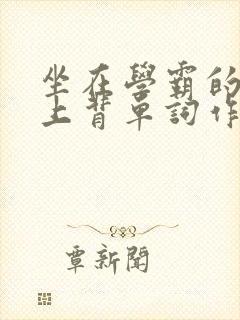 坐在學霸的
上背單詞作
覃新聞